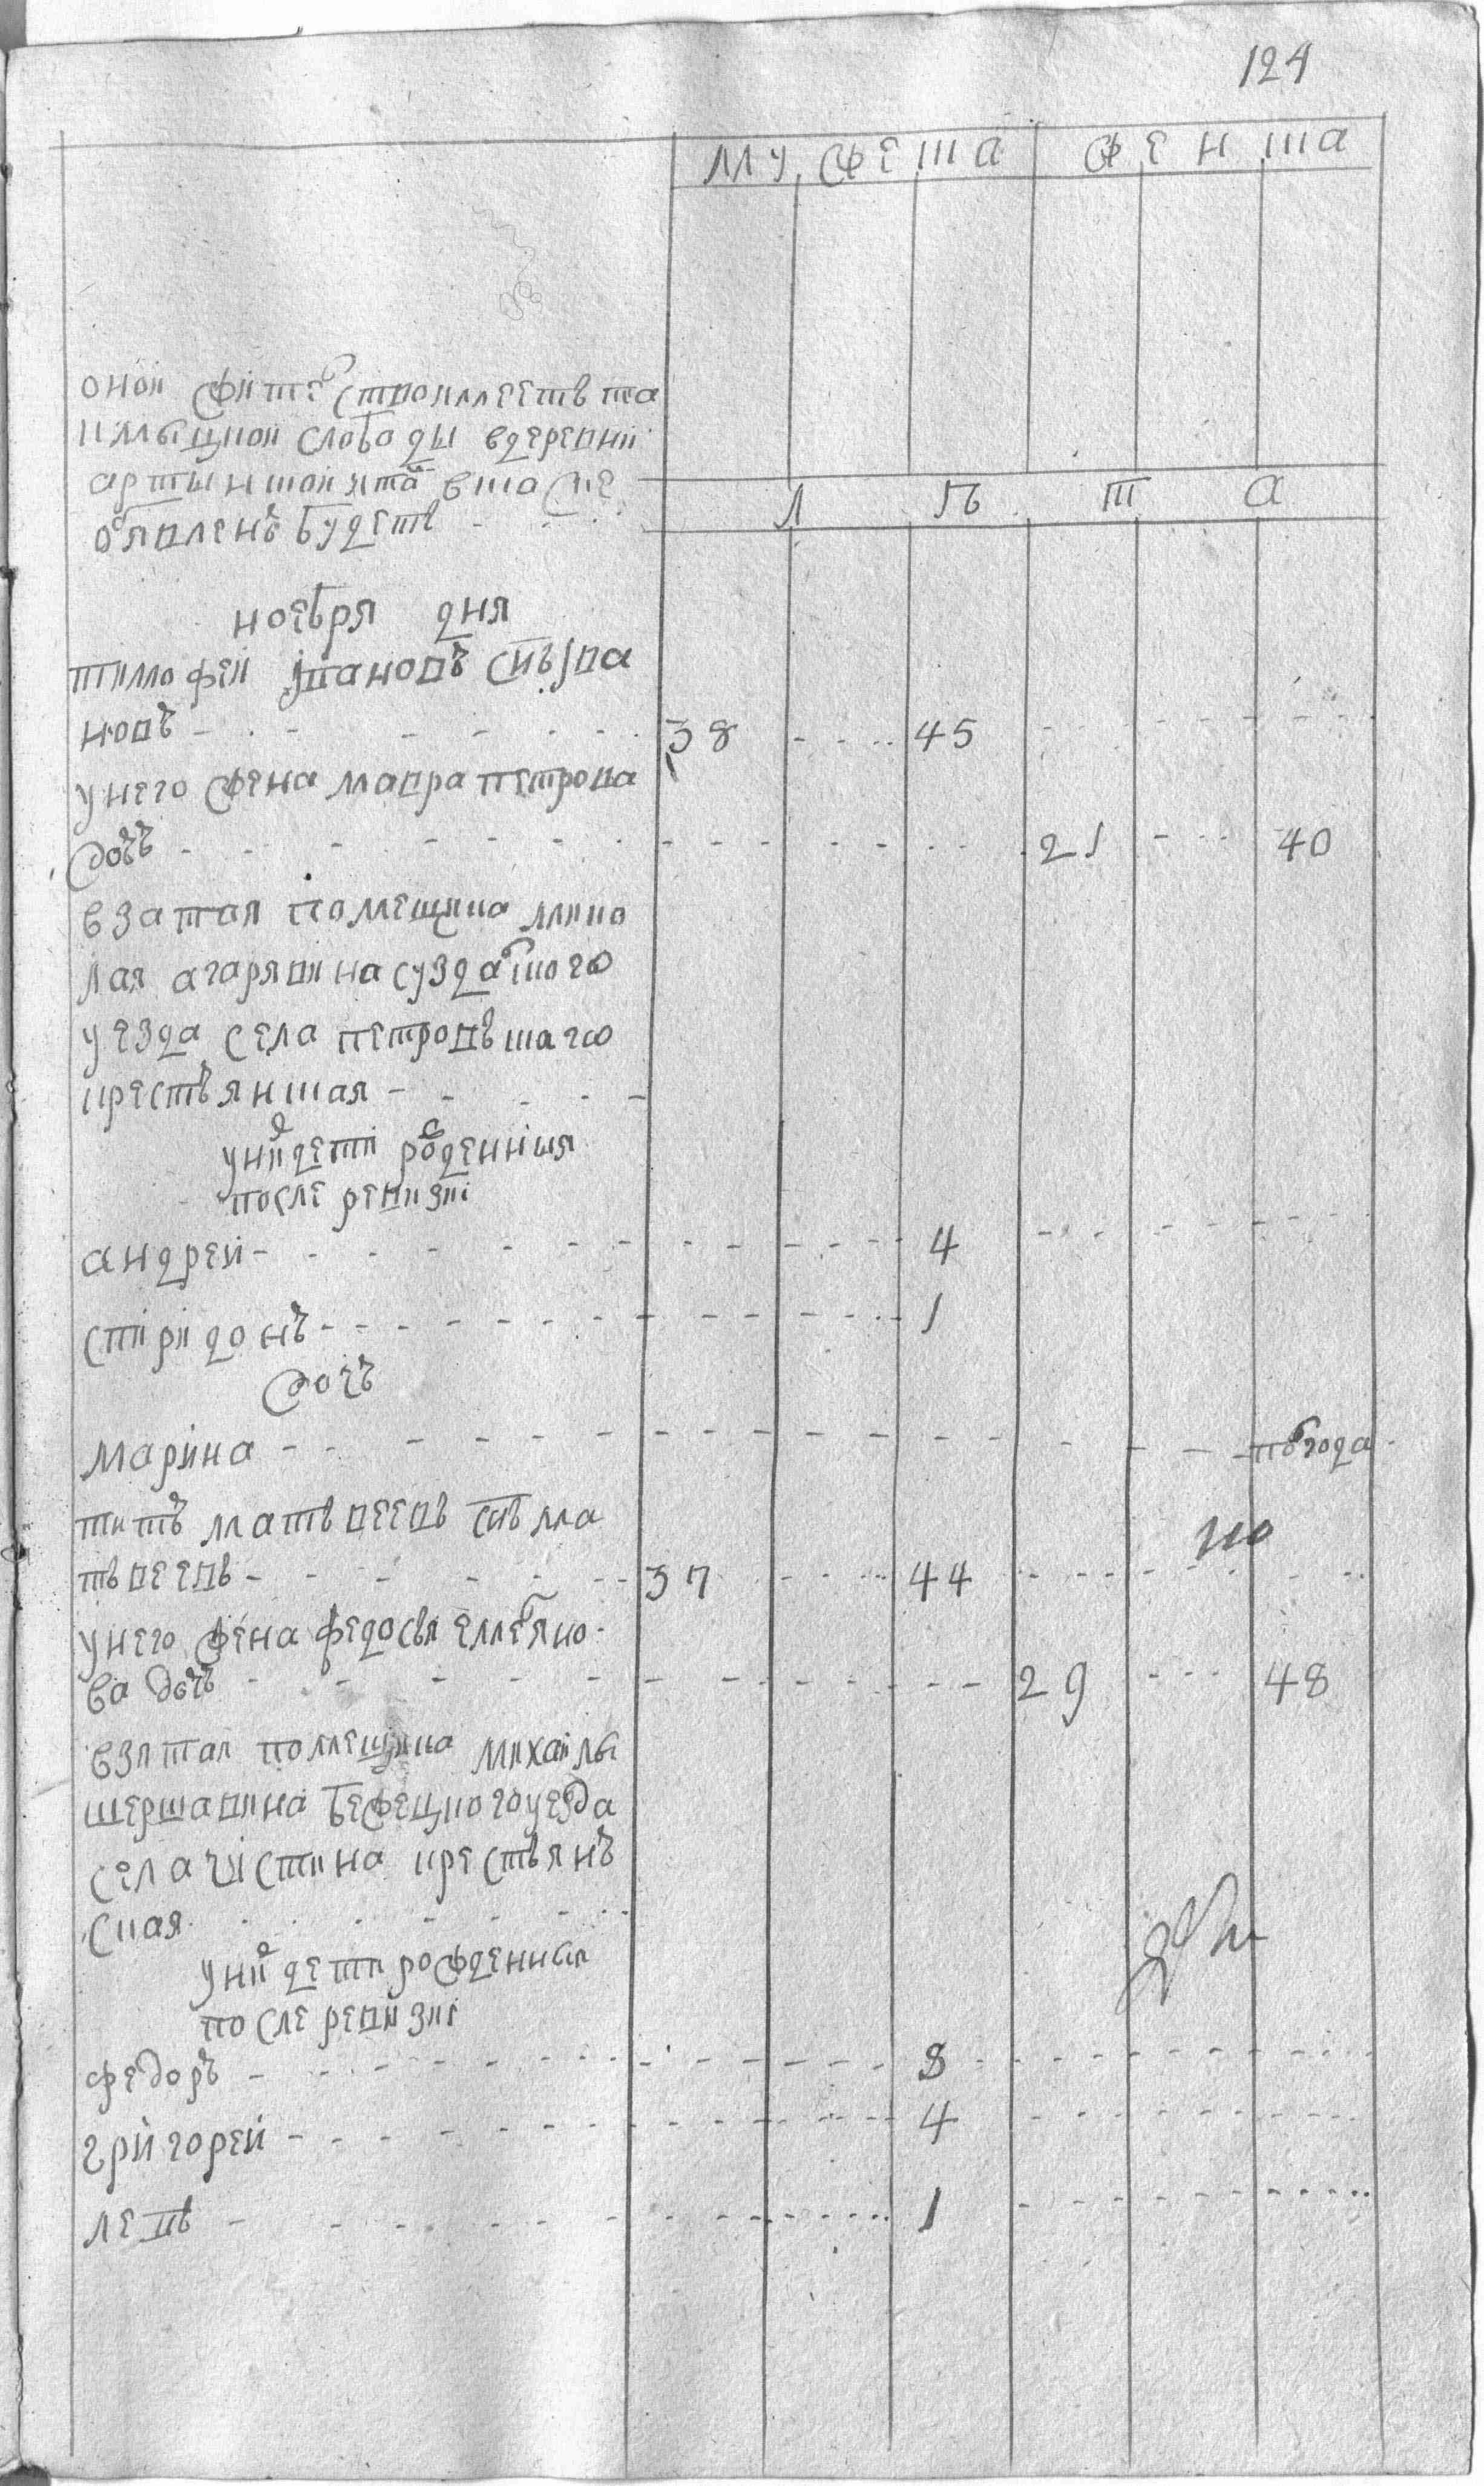 124
мужеска женска
оной жител строимместь та
илмыцкой слободы в деревни
артынской кта в каске
обявленъ будетъ
л ѣ т а
ноября дня
тимофей ивановъ снъ ива
новъ 38 45
у него жена мавра петрова
дочь 21 40
взатая помещика мико
лая агарявина суздалкого
уезда села петровскаго
крестьянская
у них дети рожденныя
после ревизиі
андрей 4
спиридонъ 1
дочь
марина полгода
титъ матвеевъ снъ ма
твеевъ 37 44
у него жена федосья емельяно
ва дочь 29 48
взятая помещика михайлы
шершавина бежецкого уезда
села чистина крестьянъ
ская
у них дети рожденныя
после ревизиі
федоръ 8
григорей 4
левъ 1